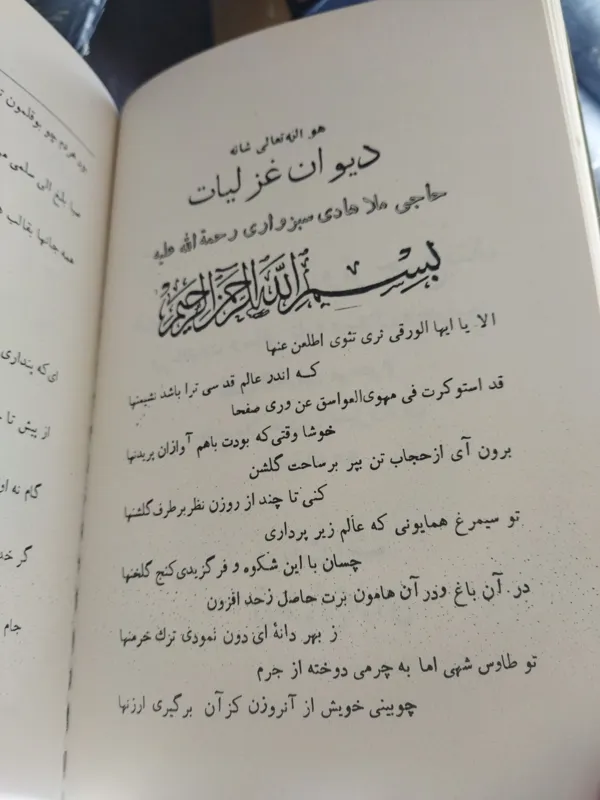 هو الله تعالی شانه
دیوان غزلیات
حاجی ملا هادی سبزواری رحمة الله علیه
بسم الله الرحمن الرحیم
الا یا ایها الورقی تری تثوی اطلعن عنها
که اندر عالم قدسی ترا باشد نشیمنها
قد استوکرت فی مهوی الغواسق عن وری صفحا
خوشا وقتی که بودت باهم آوازان پریدنها
برون آی از حجاب تن بپر بر ساحت گلشن
کنی تا چند از روزن نظر بر طرف گلشنها
تو سیمرغ همایونی که عالم زیر پرداری
چسان با این شکوه و فر گزیدی کنج گلخنها
در آن باغ ودر آن هامون برت حاصل زحد افزون
ز بهر دانهٔ ای دون نمودی ترك خرمنها
تو طاوس شهی اما به چرمی دوخته از جرم
چوبینی خویش از آنروزن کز آن برگیری ارزنها
چو بوقلمون
صبا بلغ الی سلمی
همه جانها بقالب
ای که پنداری
از پیش تا
گام نه
گر
جام